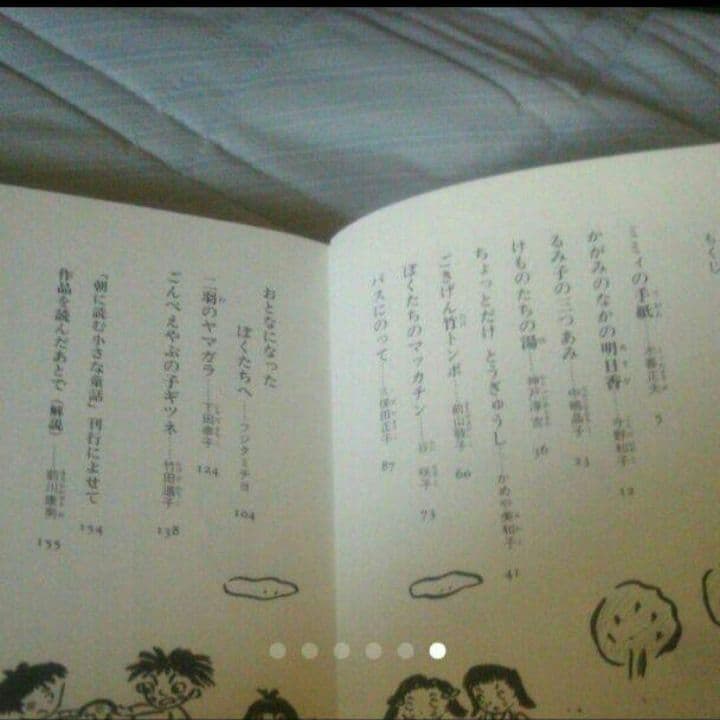 もくじ
ミミィの手紙 5
かがみのなかの明日香 今野和子 12
るみ子の三つあみ 中嶋晶子 23
けものたちの湯 神戸淳吉 36
ちょっとだけ とうぎゅうし かめや美和子 41
ごきげん竹トンボ 60
ぼくたちのマッカチン 73
バスにのって 久保田正子 87
おとなになった
ぼくたちへ フジタミチヨ 104
二羽のヤマガラ 下田幸子 124
ごんべえやぶの子ギツネ 竹田道子 138
「朝に読む小さな童話」刊行によせて 154
作品を読んだあとで（解説） 前川康男 155